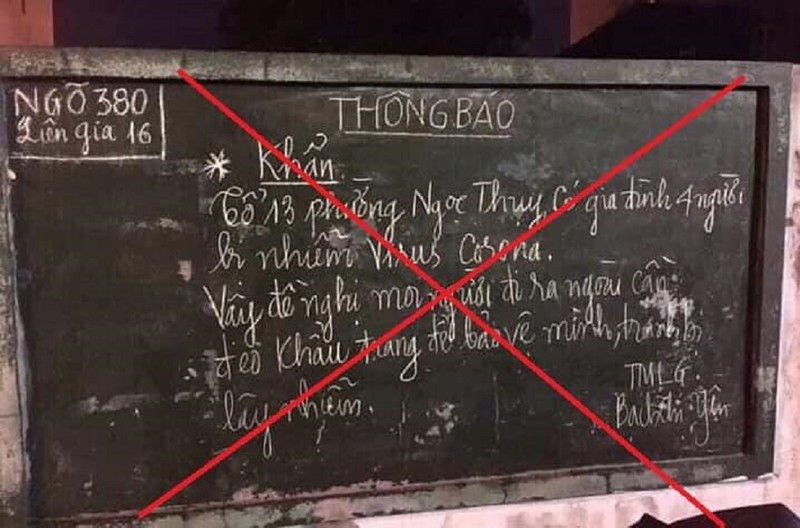 NGÕ 380
Liên gia 16
THÔNG BÁO
* Khẩn
Tổ 13 phường Ngọc Thụy Có gia đình 4 người
bị nhiễm Virus Corona.
Vậy đề nghị mọi người đi ra ngoài cần
đeo khẩu trang để bảo vệ mình, tránh bị
lây nhiễm.
TMLG.
Yên